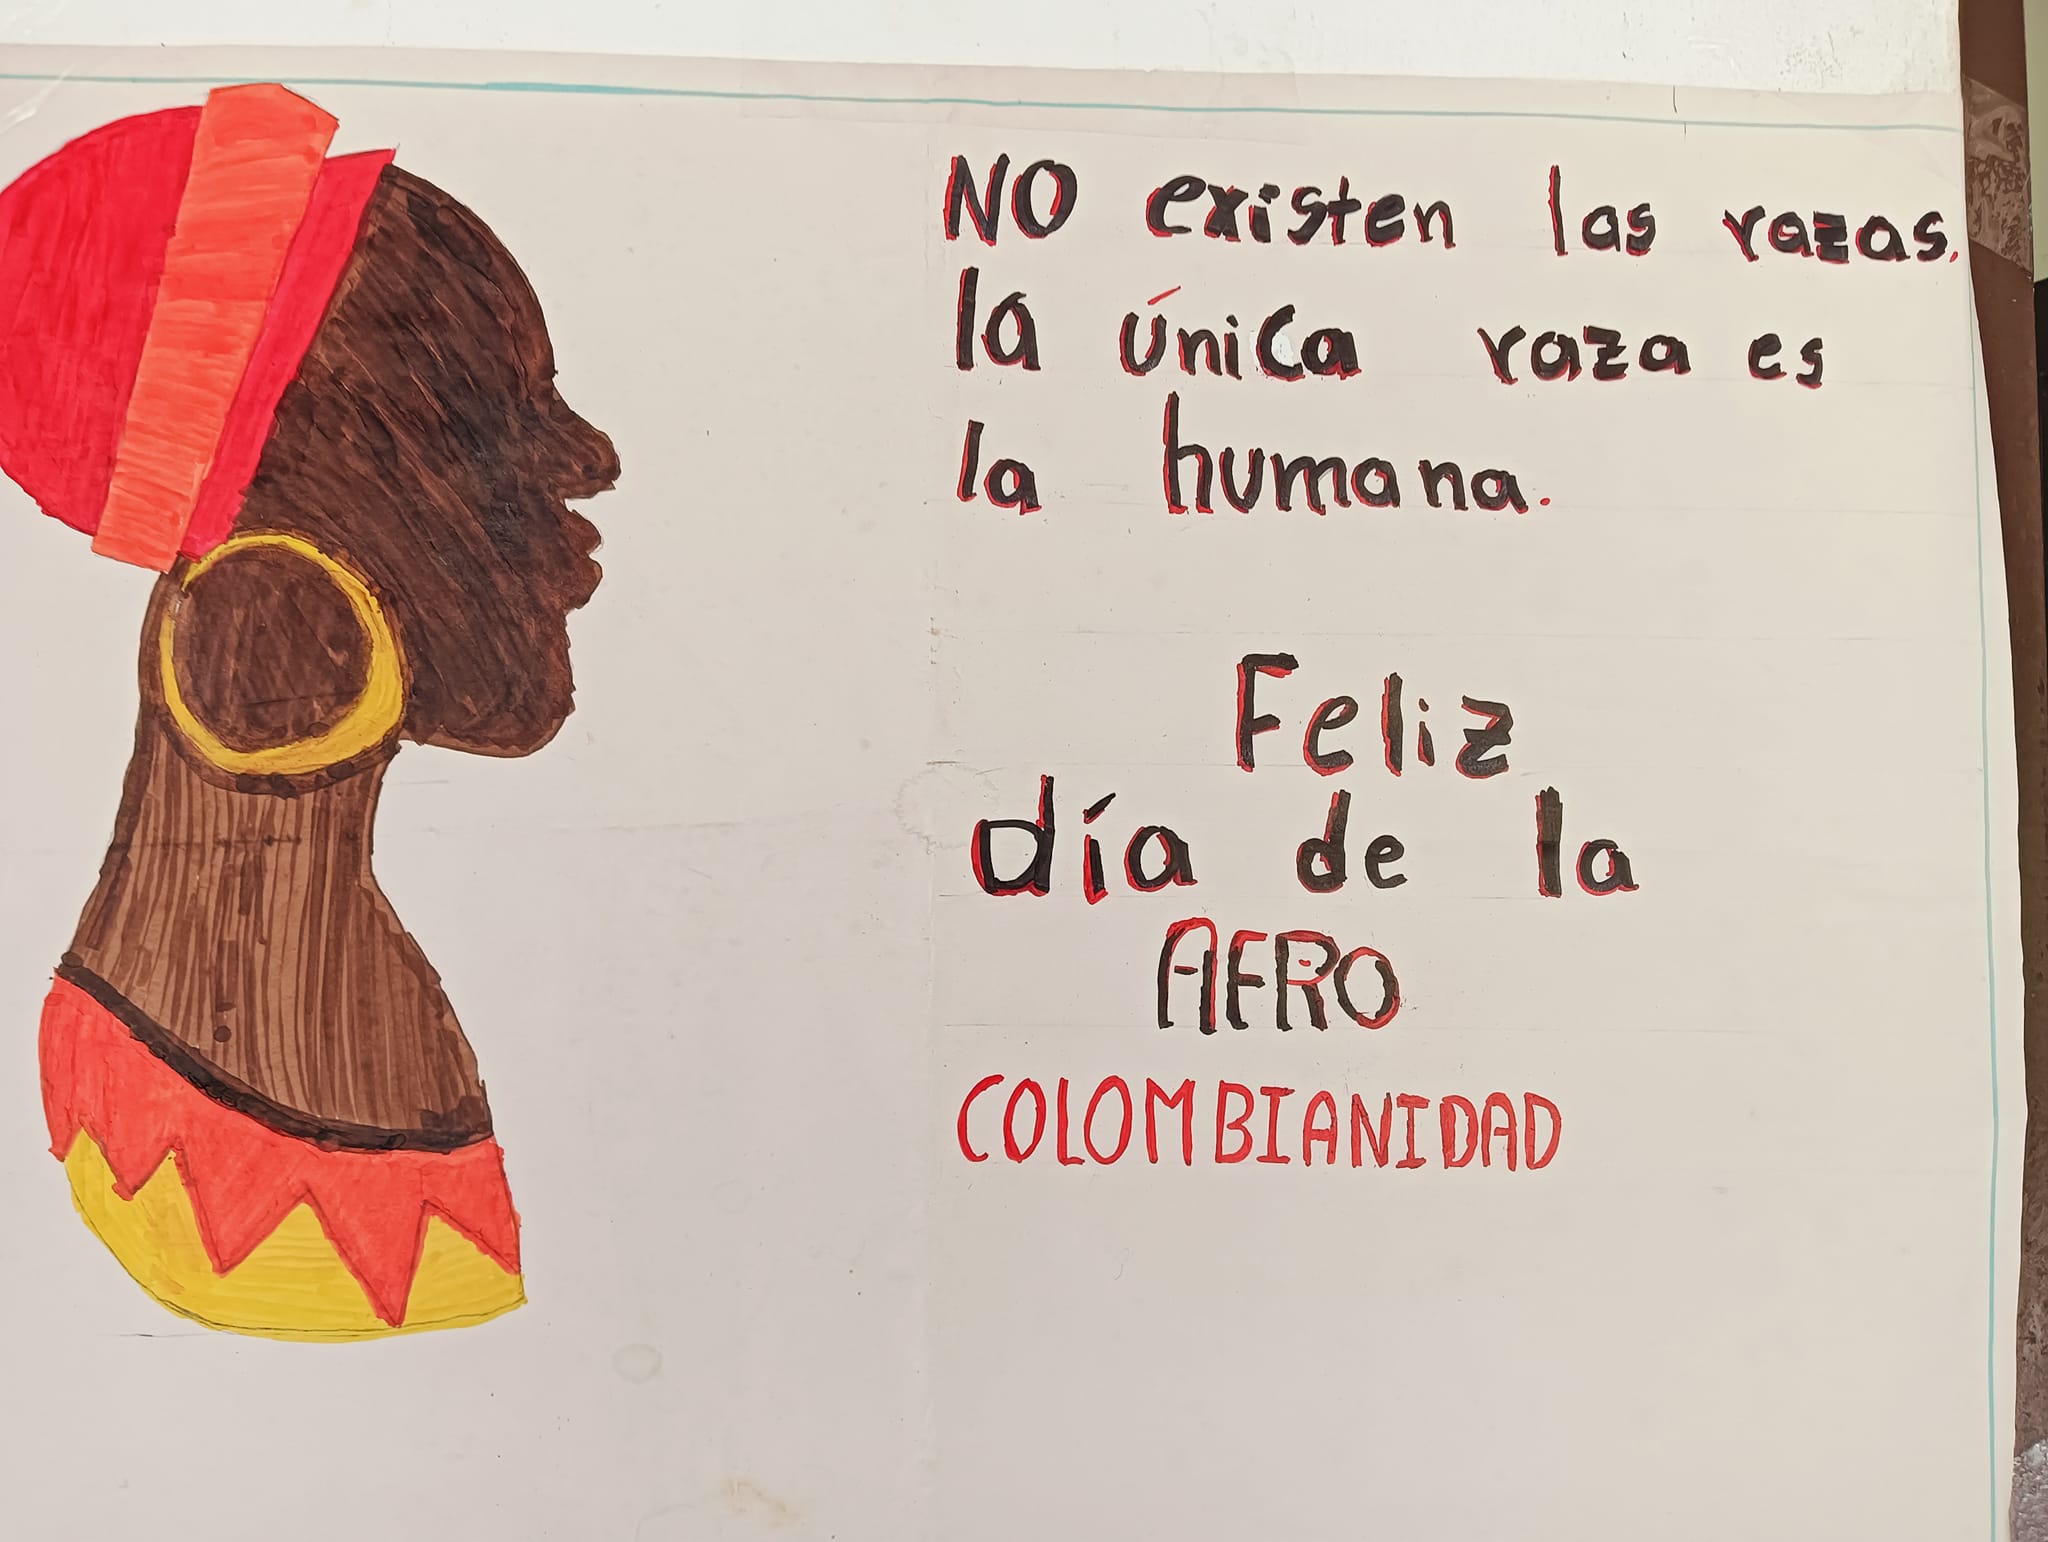 NO existen las razas.
la única raza es
la humana.
Feliz
día de la
AFRO
COLOMBIANIDAD